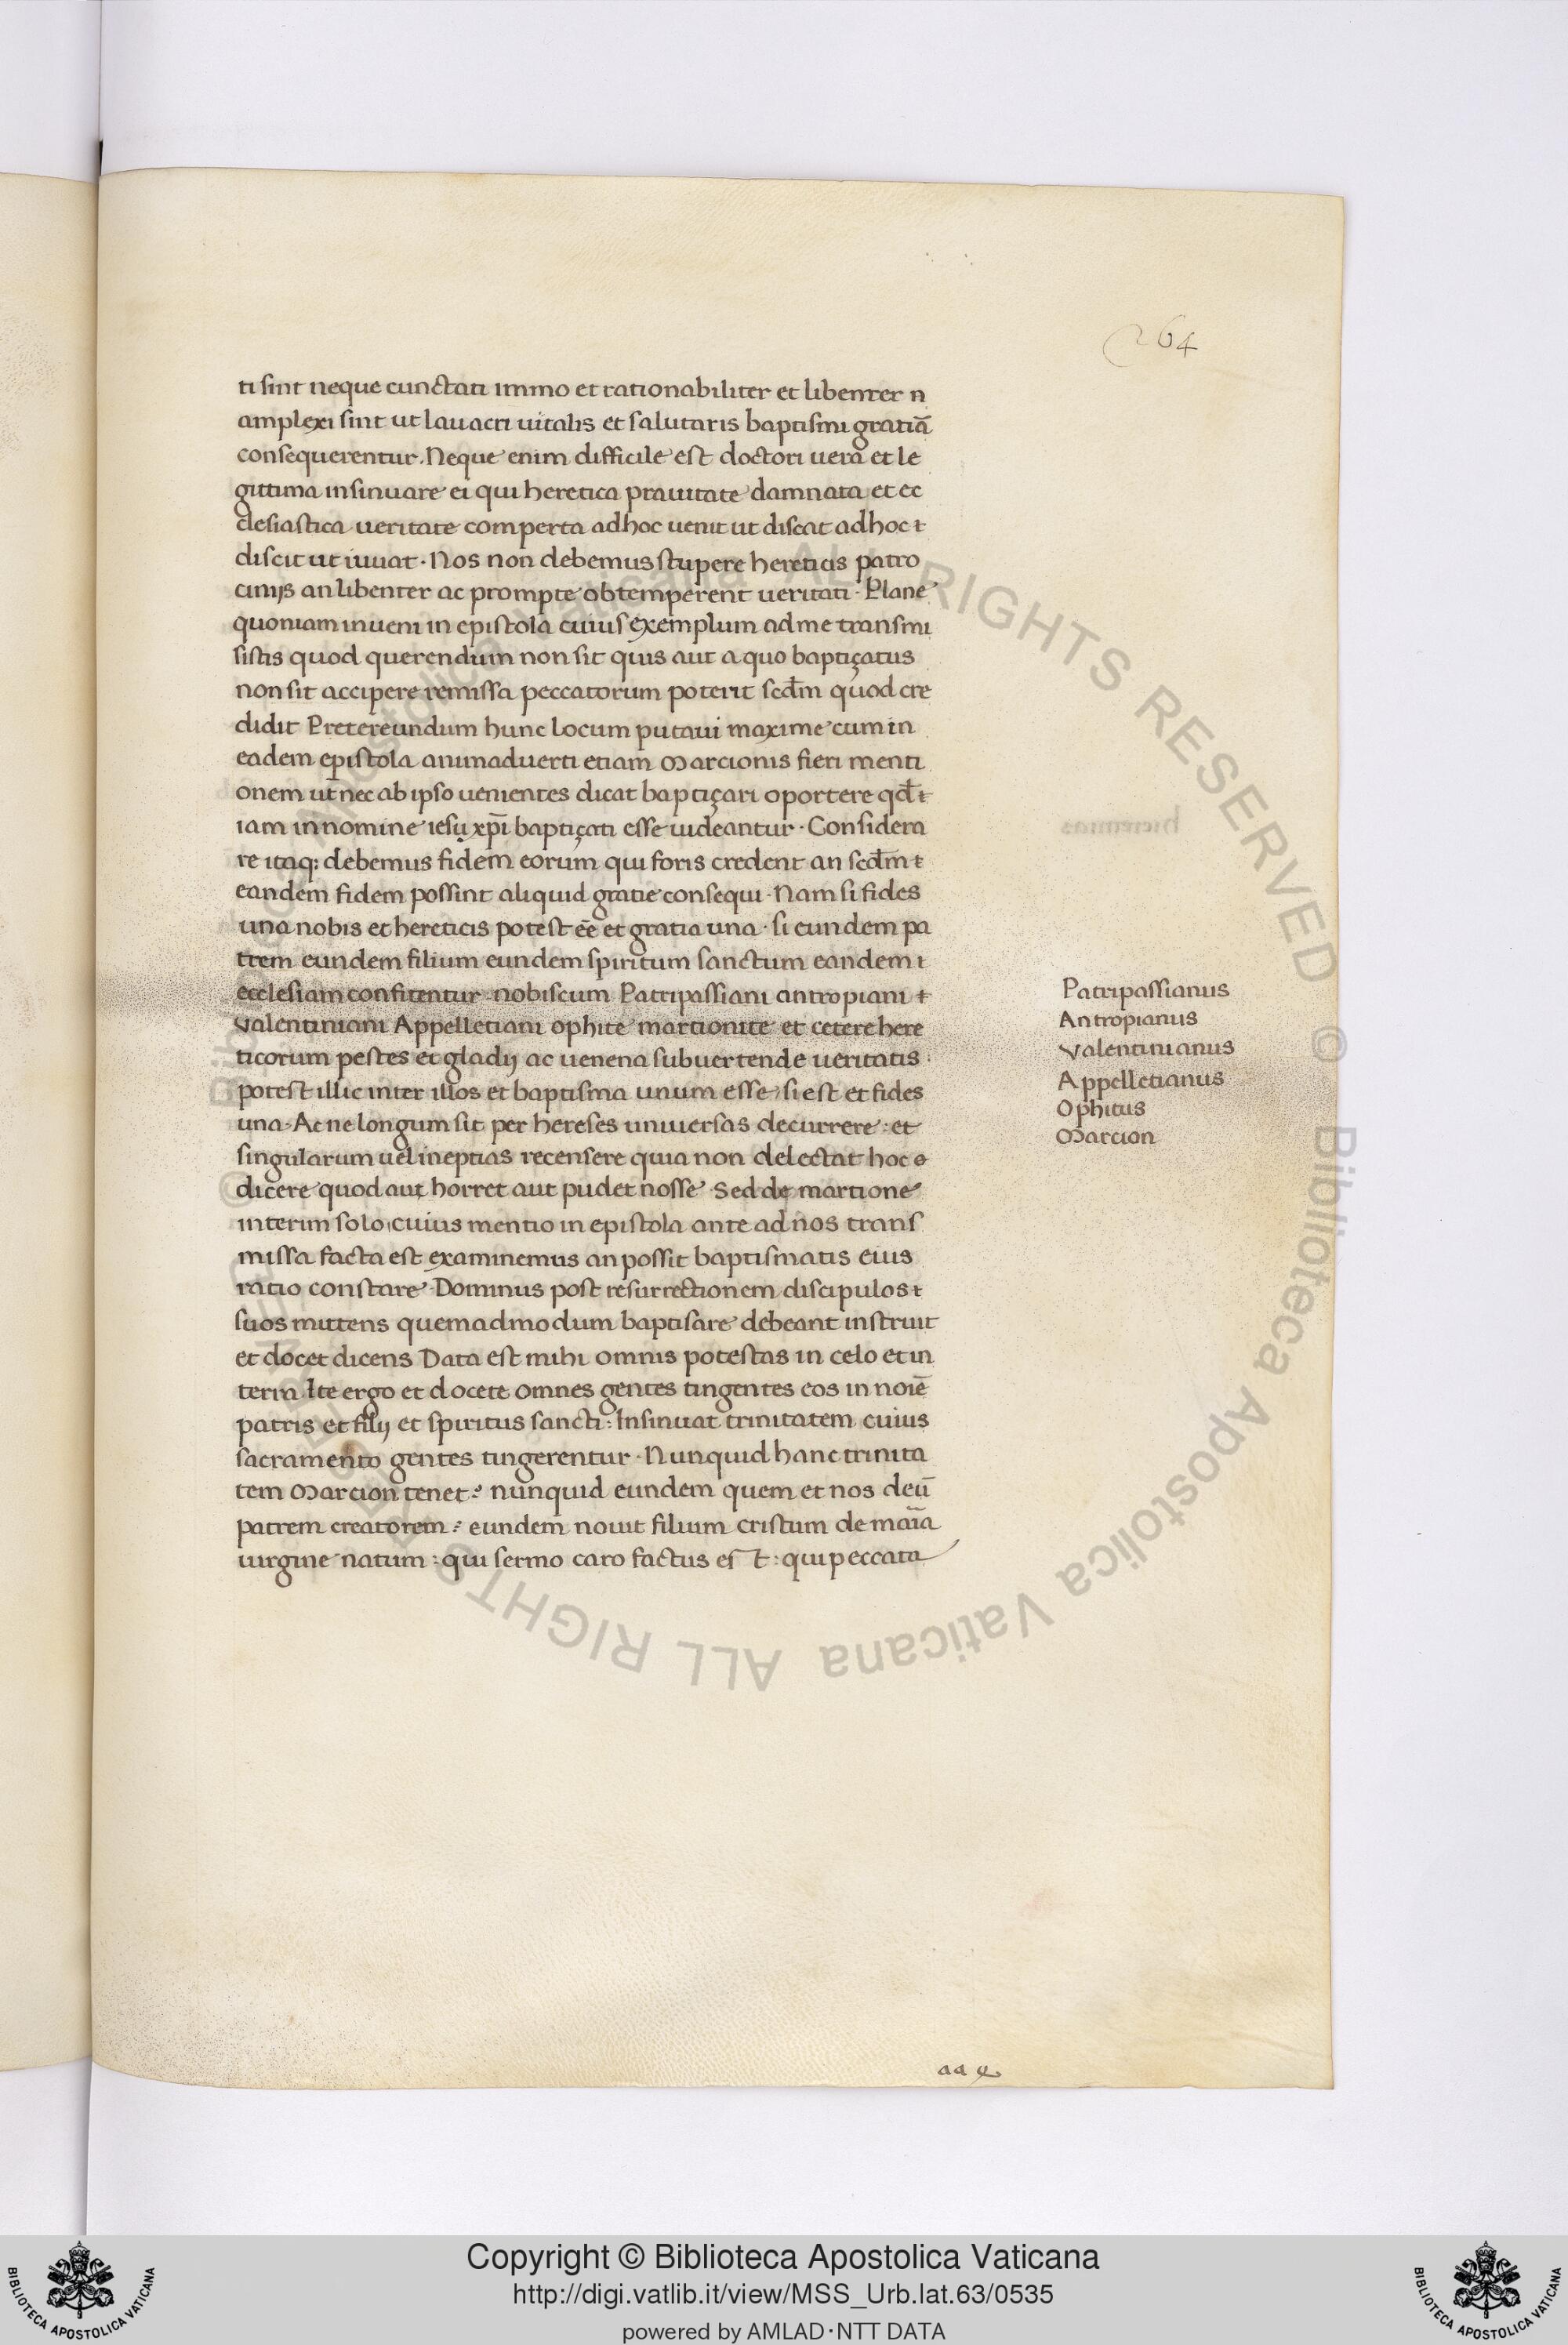 264
ti sint neque cunctati immo et rationabiliter et libenter n
amplexi sint ut lauacri uitalis et salutaris baptismi gratiā
consequerentur. Neque enim difficile est doctori uera et le
gittima insinuare ei qui heretica prauitate damnata et ec
clesiastica ueritate comperta ad hoc uenit ut discat ad hoc t
discit ut uiuat · Nos non debemus stupere hereticis patro
cinijs an libenter ac prompte obtemperent ueritati · Plane
quoniam inueni in epistola cuius exemplum ad me transmi
sistis quod querendum non sit quis aut a quo baptiçatus
non sit accipere remissa peccatorum poterit scd̄m quod cre
didit Pretereundum hunc locum putaui maxime cum in
eadem epistola animaduerti etiam Marcionis fieri menti
onem ut nec ab ipso uenientes dicat baptiçari oportere qd̄ t
iam in nomine iesu xp̄i baptiçati esse uideantur · Considera
re itaq; debemus fidem eorum qui foris credent an scd̄m t
eandem fidem possint aliquid gratie consequi · Nam si fides
una nobis et hereticis potest eē et gratia una · si eundem pa
trem eundem filium eundem spiritum sanctum eandem t
ecclesiam confitentur nobiscum Patripassiani antropiani t
valentiniani Appelletiani ophite martionite et cetere here
ticorum pestes et gladij ac uenena subuertende ueritatis
potest illic inter illos et baptisma unum esse si est et fides
una · Ac ne longum sit per hereses uniuersas decurrere : et
singularum uel ineptias recensere quia non delectat hoc e
dicere quod aut horret aut pudet nosse Sed de martione
interim solo cuius mentio in epistola ante ad nos trans
missa facta est examinemus an possit baptismatis eius
ratio constare Dominus post resurrectionem discipulos t
suos mittens quemadmodum baptisare debeant instruit
et docet dicens Data est mihi omnis potestas in celo et in
terra Ite ergo et docete omnes gentes tingentes eos in noīe
patris et filij et spiritus sancti : Insinuat trinitatem cuius
sacramento gentes tingerentur · Nunquid hanc trinita
tem Marcion tenet ? nunquid eundem quem et nos deū
patrem creatorem ? eundem nouit filium cristum de maīa
uirgine natum : qui sermo caro factus est : qui peccata
Patripassianus
Antropianus
Valentinianus
Appelletianus
Ophitus
Marcion
Copyright © Biblioteca Apostolica Vaticana
http://digi.vatlib.it/view/MSS_Urb.lat.63/0535
powered by AMLAD·NTT DATA
BIBLIOTECA APOSTOLICA VATICANA
BIBLIOTECA APOSTOLICA VATICANA
© Biblioteca Apostolica Vaticana ALL RIGHTS RESERVED © Biblioteca Apostolica Vaticana ALL RIGHTS RESERVED